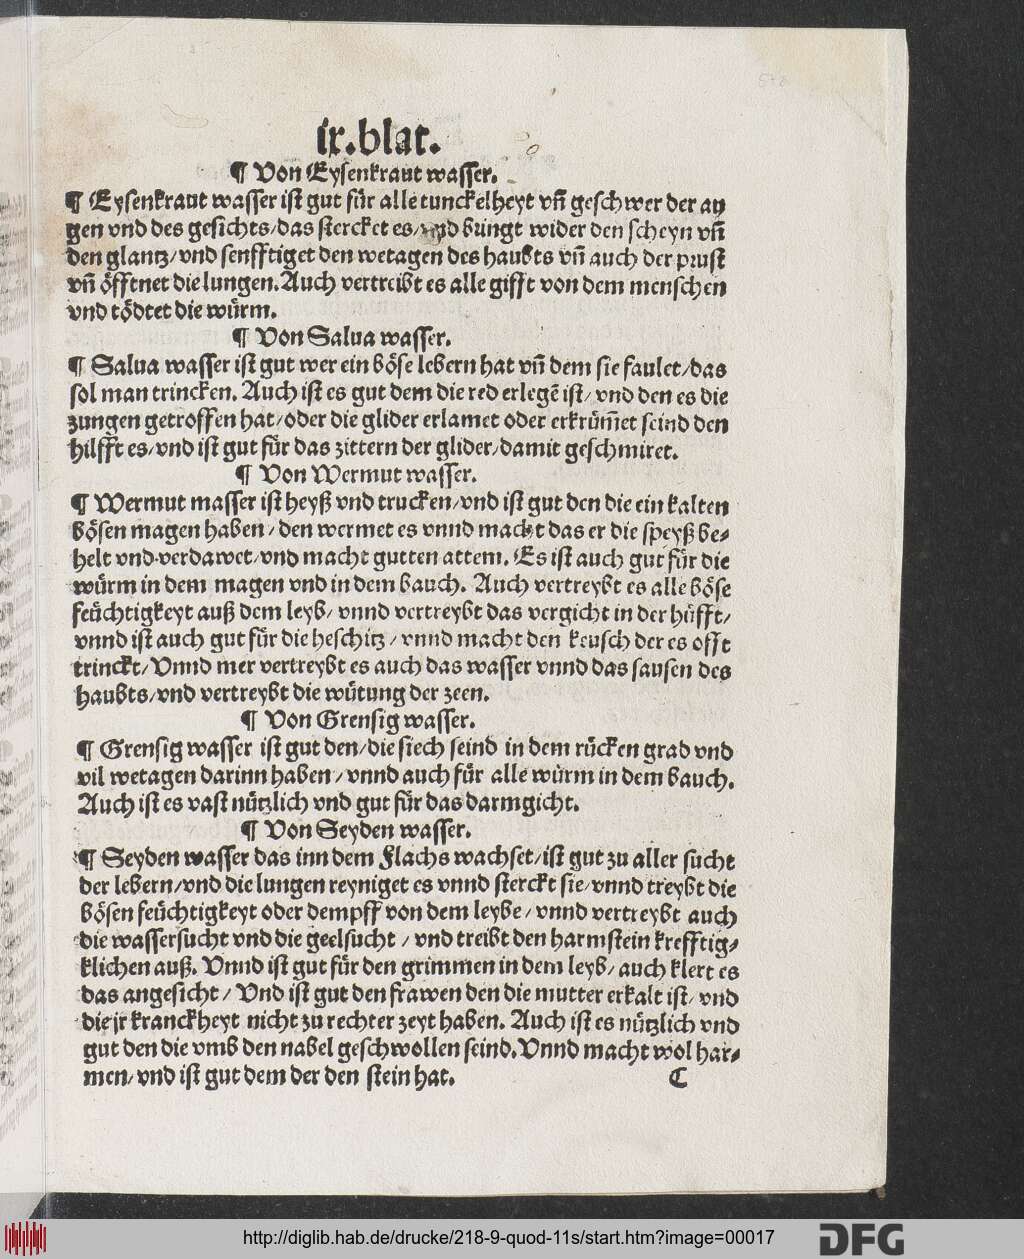 ix.blat.
¶ Von Eysenkraut wasser.
¶ Eysenkraut wasser ist gut für alle tunckelheyt vñ geschwer der au
gen vnd des gesichts/das stercket es/vnd bringt wider den scheyn vñ
den glantz/vnd senfftiget den wetagen des haubts vñ auch der prust
vñ öfftnet die lungen. Auch vertreibt es alle gifft von dem menschen
vnd tödtet die würm.
¶ Von Salua wasser.
¶ Salua wasser ist gut wer ein böse lebern hat vñ dem sie faulet/das
sol man trincken. Auch ist es gut dem die red erlegẽ ist/vnd den es die
zungen getroffen hat/oder die glider erlamet oder erkrüm̃et seind den
hilfft es/vnd ist gut für das zittern der glider/damit geschmiret.
¶ Von Wermut wasser.
¶ Wermut masser ist heyß vnd trucken/vnd ist gut den die ein kalten
bösen magen haben/den wermet es vnnd macht das er die speyß be-
helt vnd verdawet/vnd macht gutten attem. Es ist auch gut für die
würm in dem magen vnd in dem bauch. Auch vertreybt es alle böse
feüchtigkeyt auß dem leyb/vnnd vertreybt das vergicht in der hüfft/
vnnd ist auch gut für die heschitz/vnnd macht den keusch der es offt
trinckt/Vnnd mer vertreybt es auch das wasser vnnd das sausen des
haubts/vnd vertreybt die wütung der zeen.
¶ Von Grensig wasser.
¶ Grensig wasser ist gut den/die siech seind in dem rücken grad vnd
vil wetagen darinn haben/vnnd auch für alle würm in dem bauch.
Auch ist es vast nützlich vnd gut für das darmgicht.
¶ Von Seyden wasser.
¶ Seyden wasser das inn dem Flachs wachset/ist gut zu aller sucht
der lebern/vnd die lungen reyniget es vnnd sterckt sie/vnnd treybt die
bösen feüchtigkeyt oder dempff von dem leybe/vnnd vertreybt auch
die wassersucht vnd die geelsucht/vnd treibt den harmstein krefftig-
klichen auß. Vnnd ist gut für den grimmen in dem leyb/auch klert es
das angesicht/Vnd ist gut den frawen den die mutter erkalt ist/vnd
die jr kranckheyt nicht zu rechter zeyt haben. Auch ist es nützlich vnd
gut den die vmb den nabel geschwollen seind. Vnnd macht wol har-
men/vnd ist gut dem der den stein hat.
C
http://diglib.hab.de/drucke/218-9-quod-11s/start.htm?image=00017
DFG